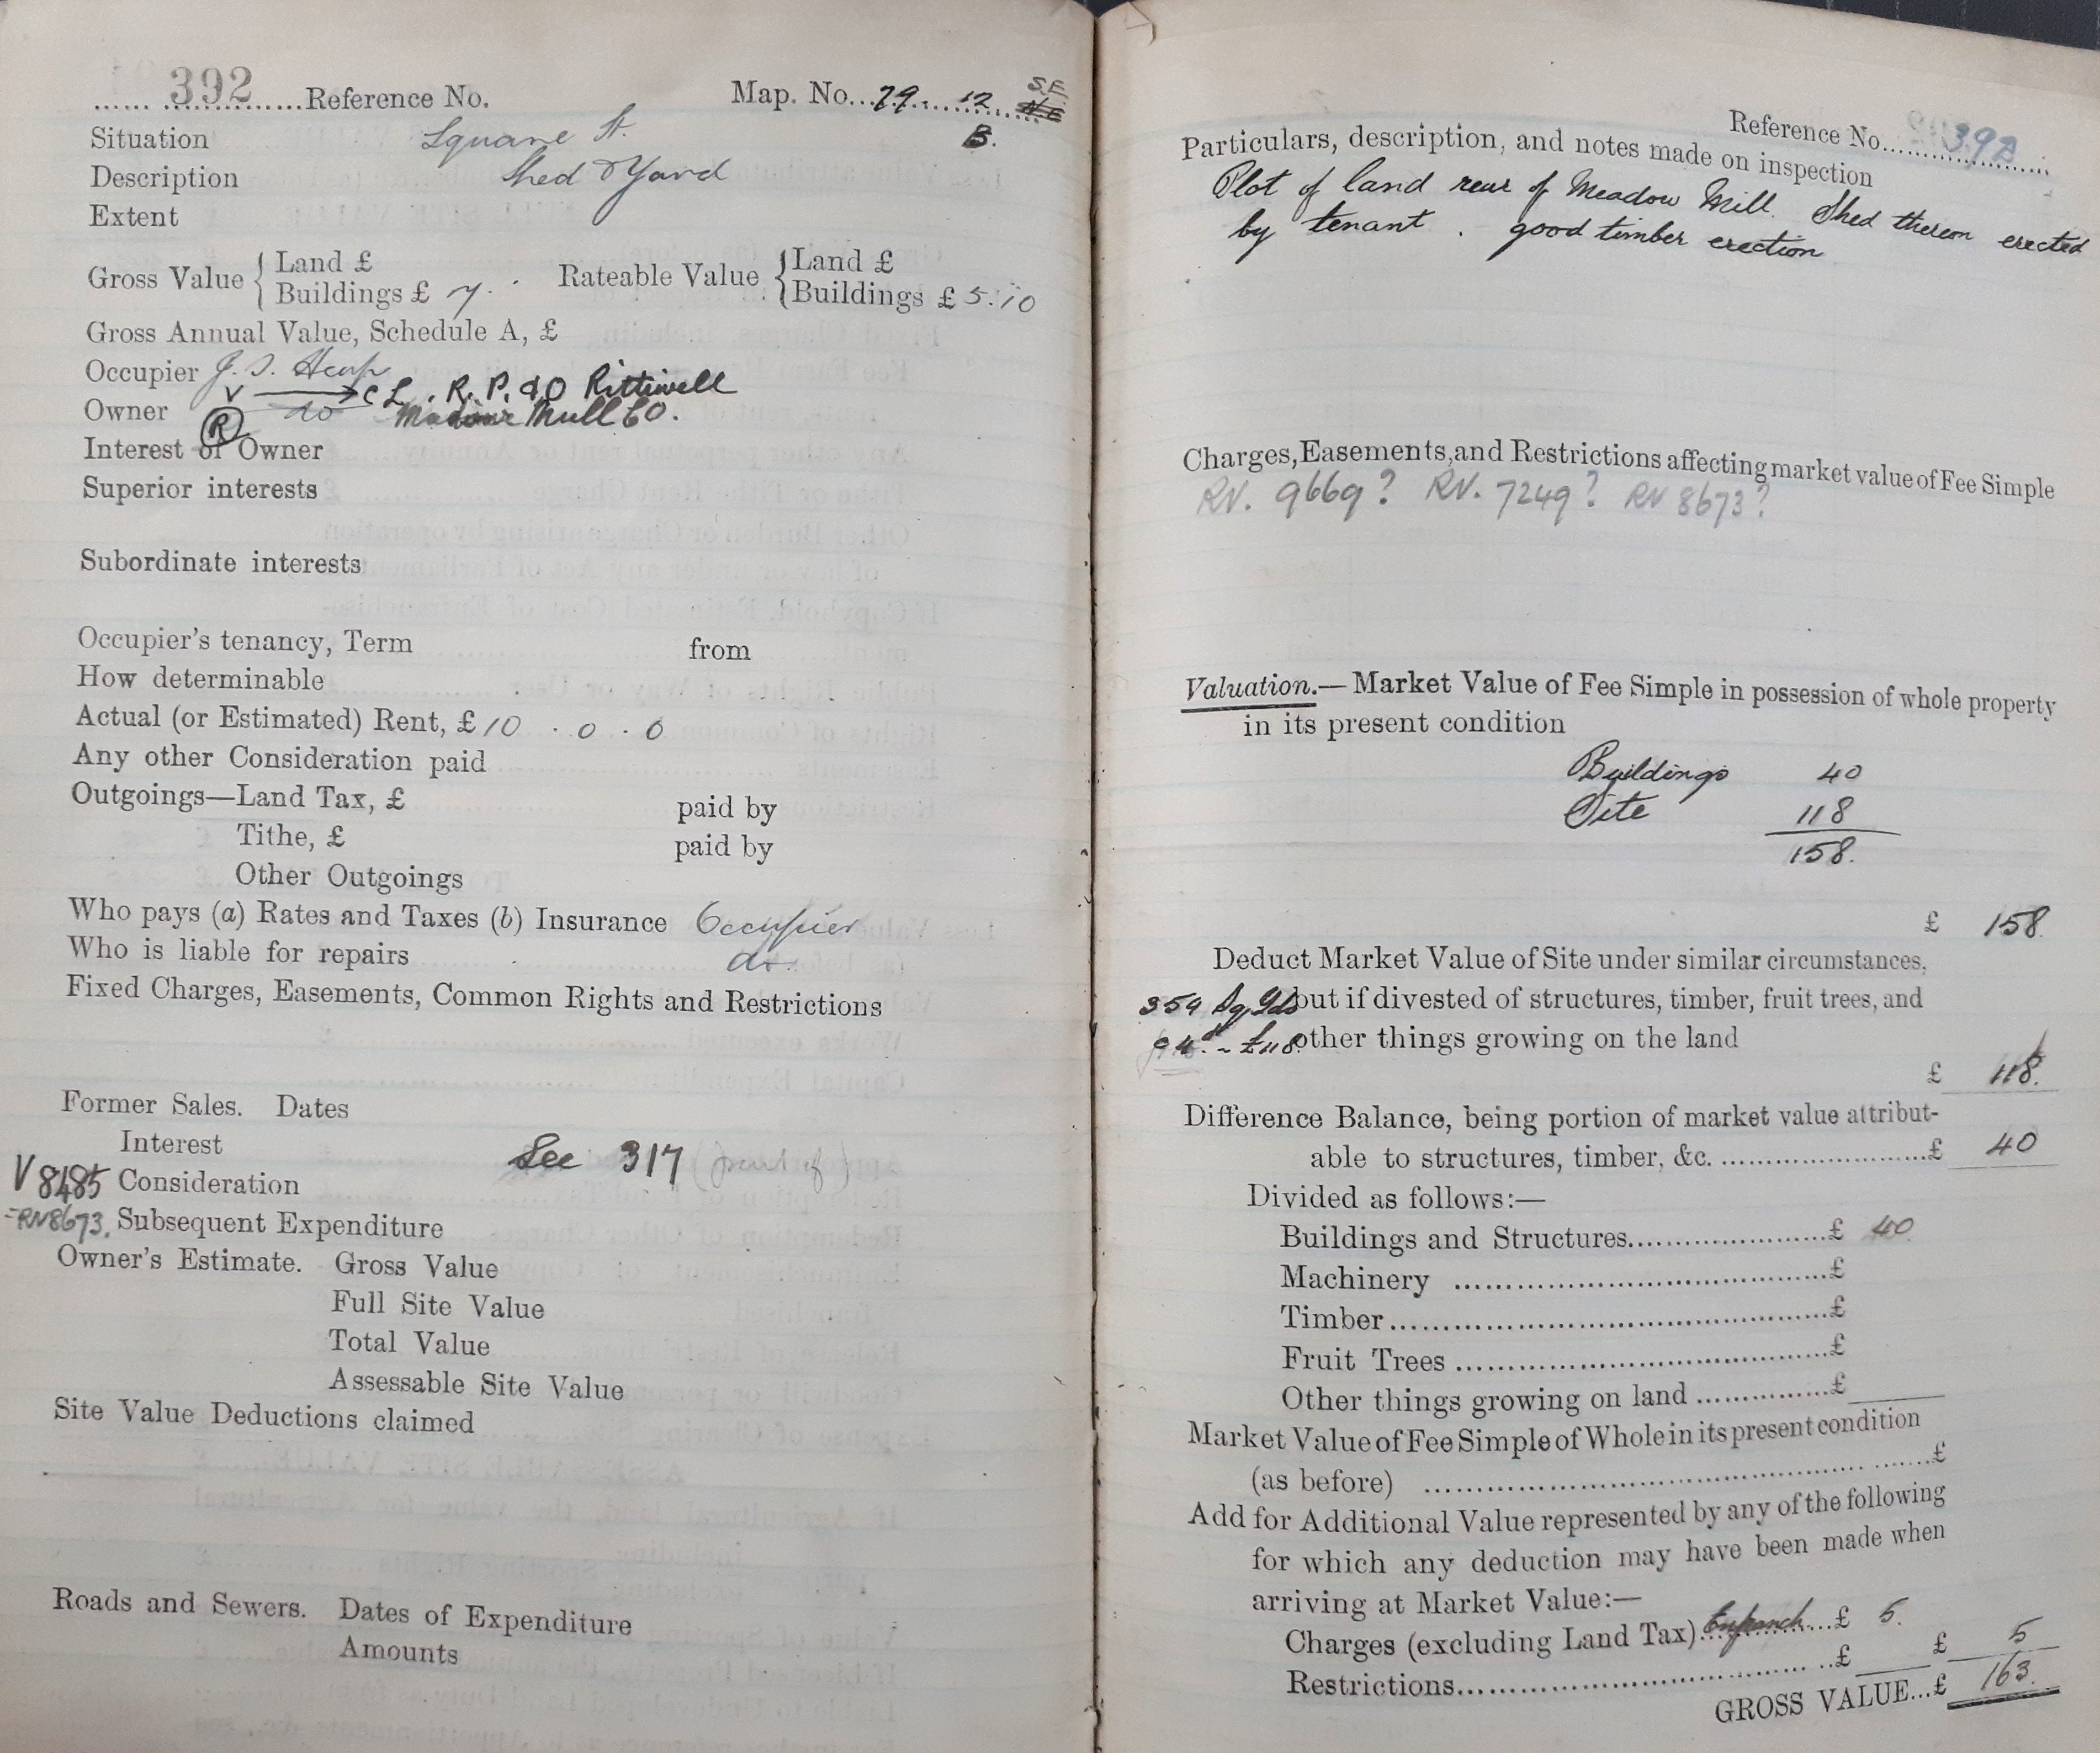 392 Reference No. Map. No. 29. 12. S.E. N.E
Situation Square St. B.
Description Shed & Yard
Extent
Gross Value { Land £
Buildings £ 7. Rateable Value { Land £
Buildings £ 5.10
Gross Annual Value, Schedule A, £
Occupier J. S. Heap
V → C L. R. P. & O Rittiwell
Owner do Meadow Mill Co.
(R)
Interest of Owner
Superior interests
Subordinate interests
Occupier's tenancy, Term from
How determinable
Actual (or Estimated) Rent, £ 10 . 0 . 0
Any other Consideration paid
Outgoings—Land Tax, £ paid by
Tithe, £ paid by
Other Outgoings
Who pays (a) Rates and Taxes (b) Insurance Occupier
Who is liable for repairs do.
Fixed Charges, Easements, Common Rights and Restrictions
Former Sales. Dates
Interest See 317 (part of)
V 8485 Consideration
=RN8673. Subsequent Expenditure
Owner's Estimate. Gross Value
Full Site Value
Total Value
Assessable Site Value
Site Value Deductions claimed
Roads and Sewers. Dates of Expenditure
Amounts
Reference No. 392
Particulars, description, and notes made on inspection
Plot of land rear of Meadow Mill. Shed thereon erected
by tenant . good timber erection
Charges, Easements, and Restrictions affecting market value of Fee Simple
RV. 9669? RV. 7249? RN 8673?
Valuation.—Market Value of Fee Simple in possession of whole property
in its present condition
Buildings 40
Site 118
158.
£ 158.
Deduct Market Value of Site under similar circumstances,
354 Sq Yds but if divested of structures, timber, fruit trees, and
£118. other things growing on the land
£ 118.
Difference Balance, being portion of market value attribut-
able to structures, timber, &c. £ 40
Divided as follows:—
Buildings and Structures £ 40
Machinery £
Timber £
Fruit Trees £
Other things growing on land £
Market Value of Fee Simple of Whole in its present condition
(as before) £
Add for Additional Value represented by any of the following
for which any deduction may have been made when
arriving at Market Value:—
Charges (excluding Land Tax) Enfranch £ 5.
Restrictions £ £ 5
GROSS VALUE...£ 163.